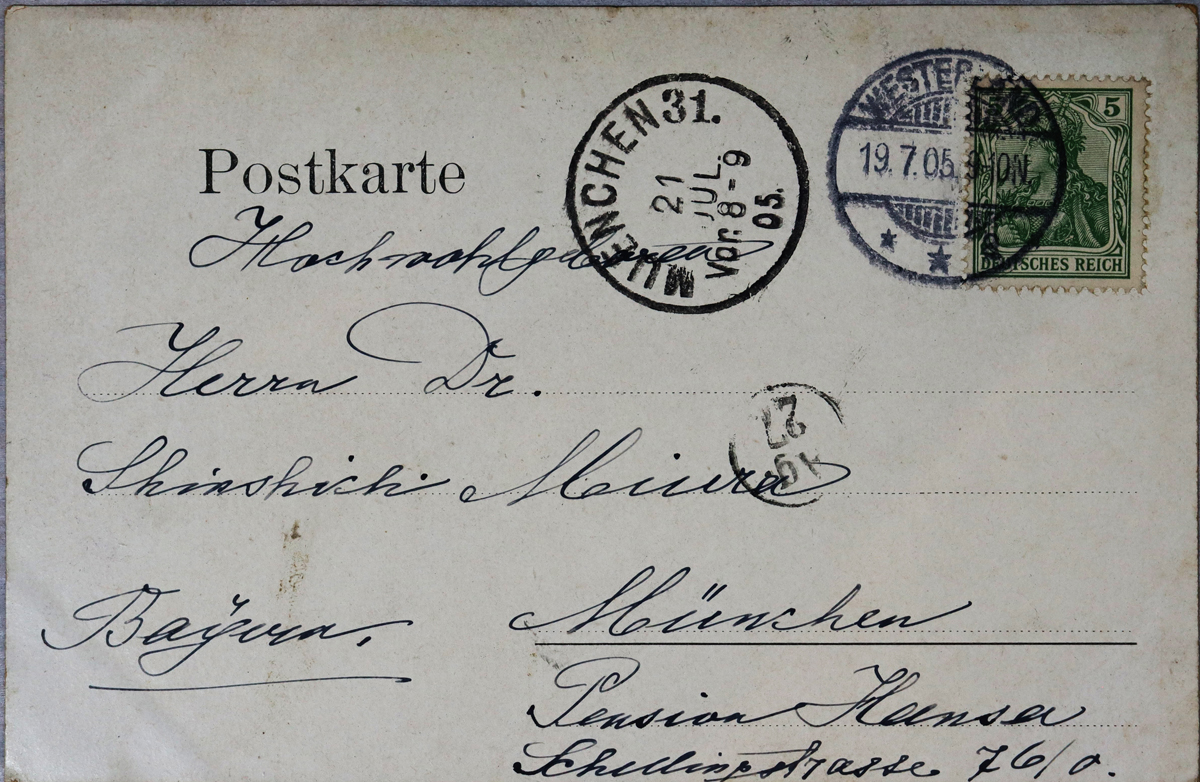 Postkarte
MUENCHEN 31.
21
JUL.
Vor. 8-9
05.
WESTERLAND
19. 7. 05. 9-10N.
5
DEUTSCHES REICH
Hochwohlgeboren
Herrn Dr.
27
Shinshichi Miura
München
Bayern.
Pension Hansa
Schellingstrasse 76/0.